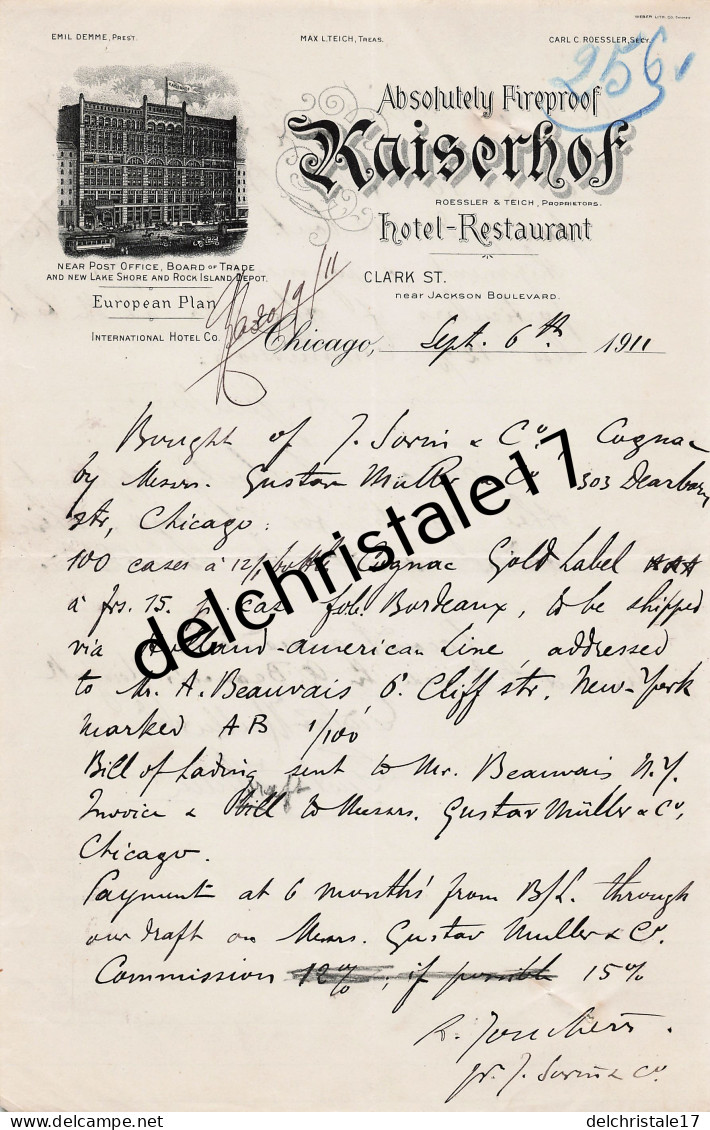 WEBER LITH. CO. CHICAGO
EMIL DEMME, PREST. MAX L. TEICH, TREAS. CARL C. ROESSLER, SECY.
256.
Absolutely Fireproof
Kaiserhof
ROESSLER & TEICH, PROPRIETORS.
Hotel-Restaurant
NEAR POST OFFICE, BOARD OF TRADE
AND NEW LAKE SHORE AND ROCK ISLAND DEPOT.
European Plan
INTERNATIONAL HOTEL CO.
CLARK ST.
near JACKSON BOULEVARD.
Chicago, Sept. 6th. 1911
Bought of J. Sorin & Co. Cognac
by Messrs. Gustav Müller & Co. 303 Dearborn
str, Chicago:
100 cases à 12/1 bottl. Cognac Gold Label ***
à frs. 15. p. case fob. Bordeaux, to be shipped
via Holland-american Line, addressed
to Mr. A. Beauvais 6. Cliff str. New-York
marked AB 1/100
Bill of Lading sent to Mr. Beauvais N.Y.
Invoice & Bill draft to Messrs. Gustav Müller & Co,
Chicago.
Payment at 6 months' from B/L. through
our draft on Messrs. Gustav Muller & Co.
Commission 12%, if possible 15%
J. Sorin & Co.
delchristale17
delchristale17